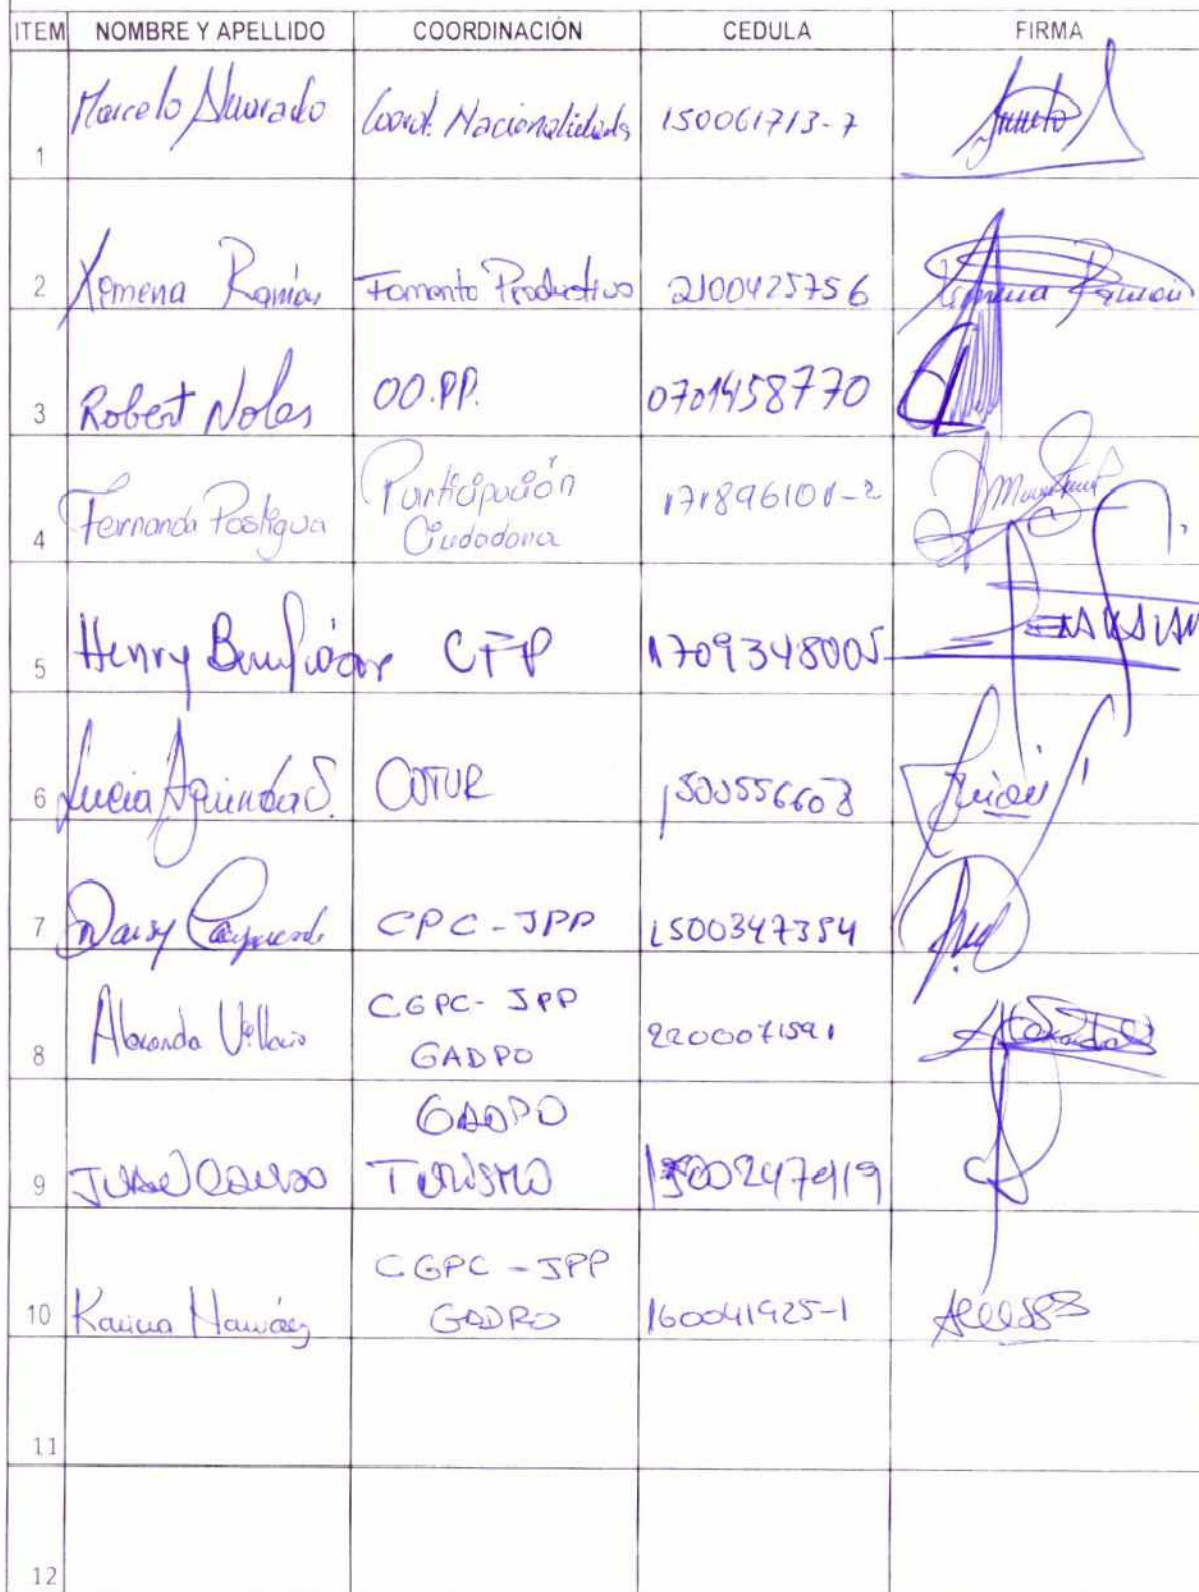 ITEM NOMBRE Y APELLIDO COORDINACIÓN CEDULA FIRMA
1 Marcelo Alvarado Coord. Nacionalidads 150061713-7
2 Ximena Ramón Fomento Productivo 2100425756 Ximena Ramón
3 Robert Noles OO.PP. 0701458770
4 Fernanda Pastigua Participación
Ciudadana 171896101-2
5 Henry CFP 1709348005
6 Lucia Aguinda S. COTUR 1500556603
7 Daisy CPC-JPP 1500347354
8 Alexanda CGPC-JPP
GADPO 2200071591
9 GADPO
TURISMO 1500247919
10 Karina CGPC-JPP
GADPO 160041925-1
11
12